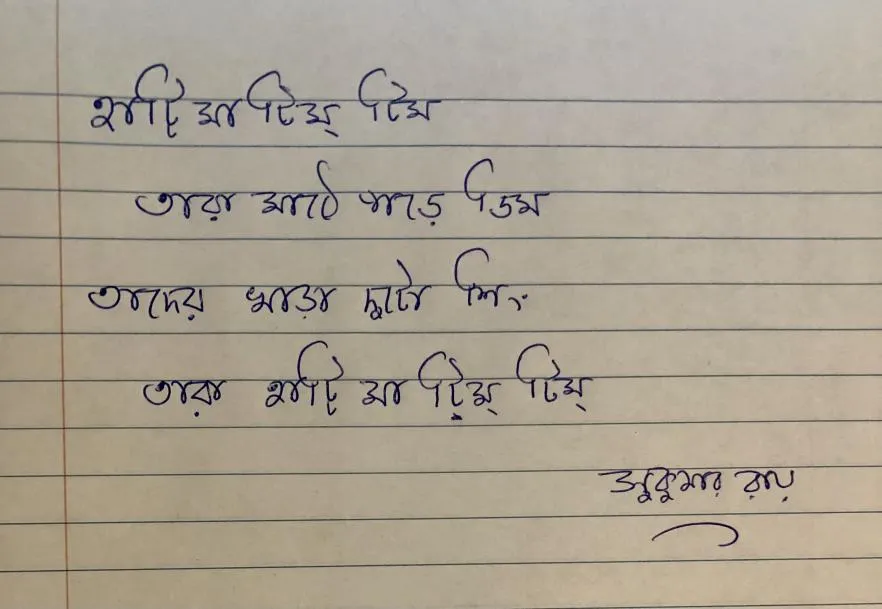 হাটি মা টিম্ টিম
তারা মাঠে পাড়ে ডিম
তাদের খাড়া দুটো শিং
তারা হাটি মা টি্ম্ টিম্
সুকুমার রায়